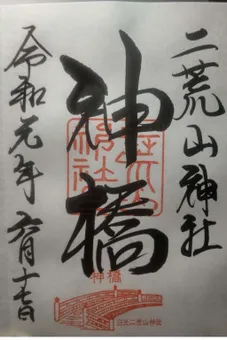 二荒山神社
神橋
令和元年六月十七日
神橋
日光二荒山神社